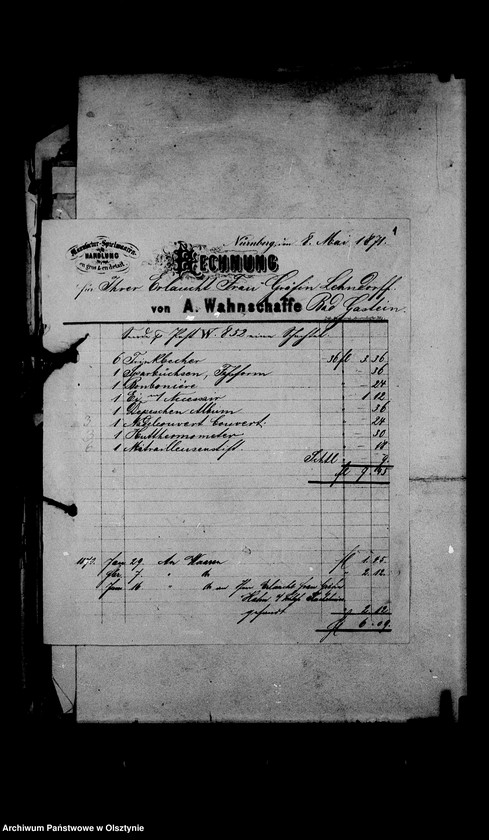 1
Nürnberg, im 8. Mai 1871.
Manufactur-Spielwaaren-
HANDLUNG
en gros & en detail
RECHNUNG
für Ihrer Erlaucht Frau Gräfin Lehndorff
von A. Wahnschaffe Bad Gastein.
Sende p Post W. 832 eine Schachtel
6 Trinkbecher 36 fl 3. 36
1 Sparbüchsen, - 36
1 Bonbonière - 24
1 Necessair 1 12
1 Depeschen Album - 36
1 Couvert - 24
1 Hutthermometer - 30
1 Mitrailleusenstift - 18
fl 9.
1870. Jan. 29. An Waaren fl 1. 45.
7. " " - 2. 12.
Juni 16. " " an Frau Gräfin
gesandt 2. 12
fl 6. 09.
Archiwum Państwowe w Olsztynie